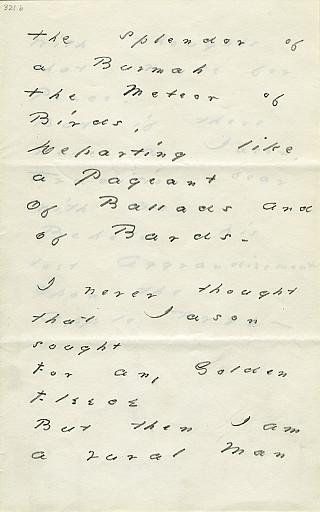 321b
the Splendor of
a Burmah
the Meteor of
Birds,
Departing like
a Pageant
Of Ballads and
of Bards -
I never thought
that Jason
sought
For any Golden
Fleece
But then I am
a rural Man